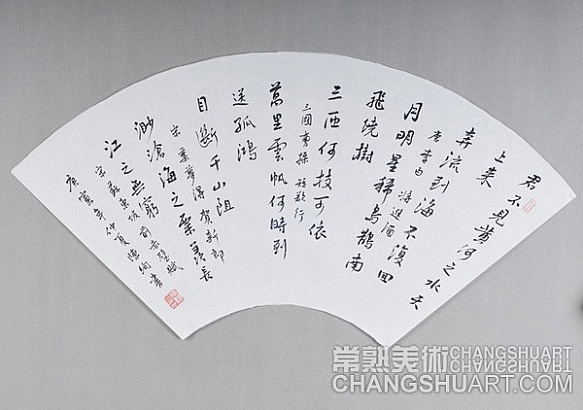 君不見黃河之水天
上來
奔流到海不復回
唐李白 將進酒
月明星稀烏鵲南
飛繞樹
三匝何枝可依
三國曹操 短歌行
萬里雲帆何時到
送孤鴻
目斷千山阻
宋葉夢得賀新郎
渺滄海之粟羨長
江之無窮
宋蘇東坡前赤壁賦
庚寅年仲夏 書
常熟美術 CHANGSHUART
CHANGSHUART.COM